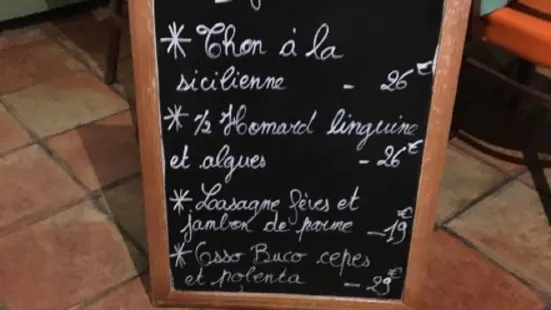 * Thon à la
sicilienne - 26€
* 1/2 Homard linguine
et algues - 26€
* Lasagne fèves et
jambon de parme - 19€
* Osso Buco cepes
et polenta - 29€